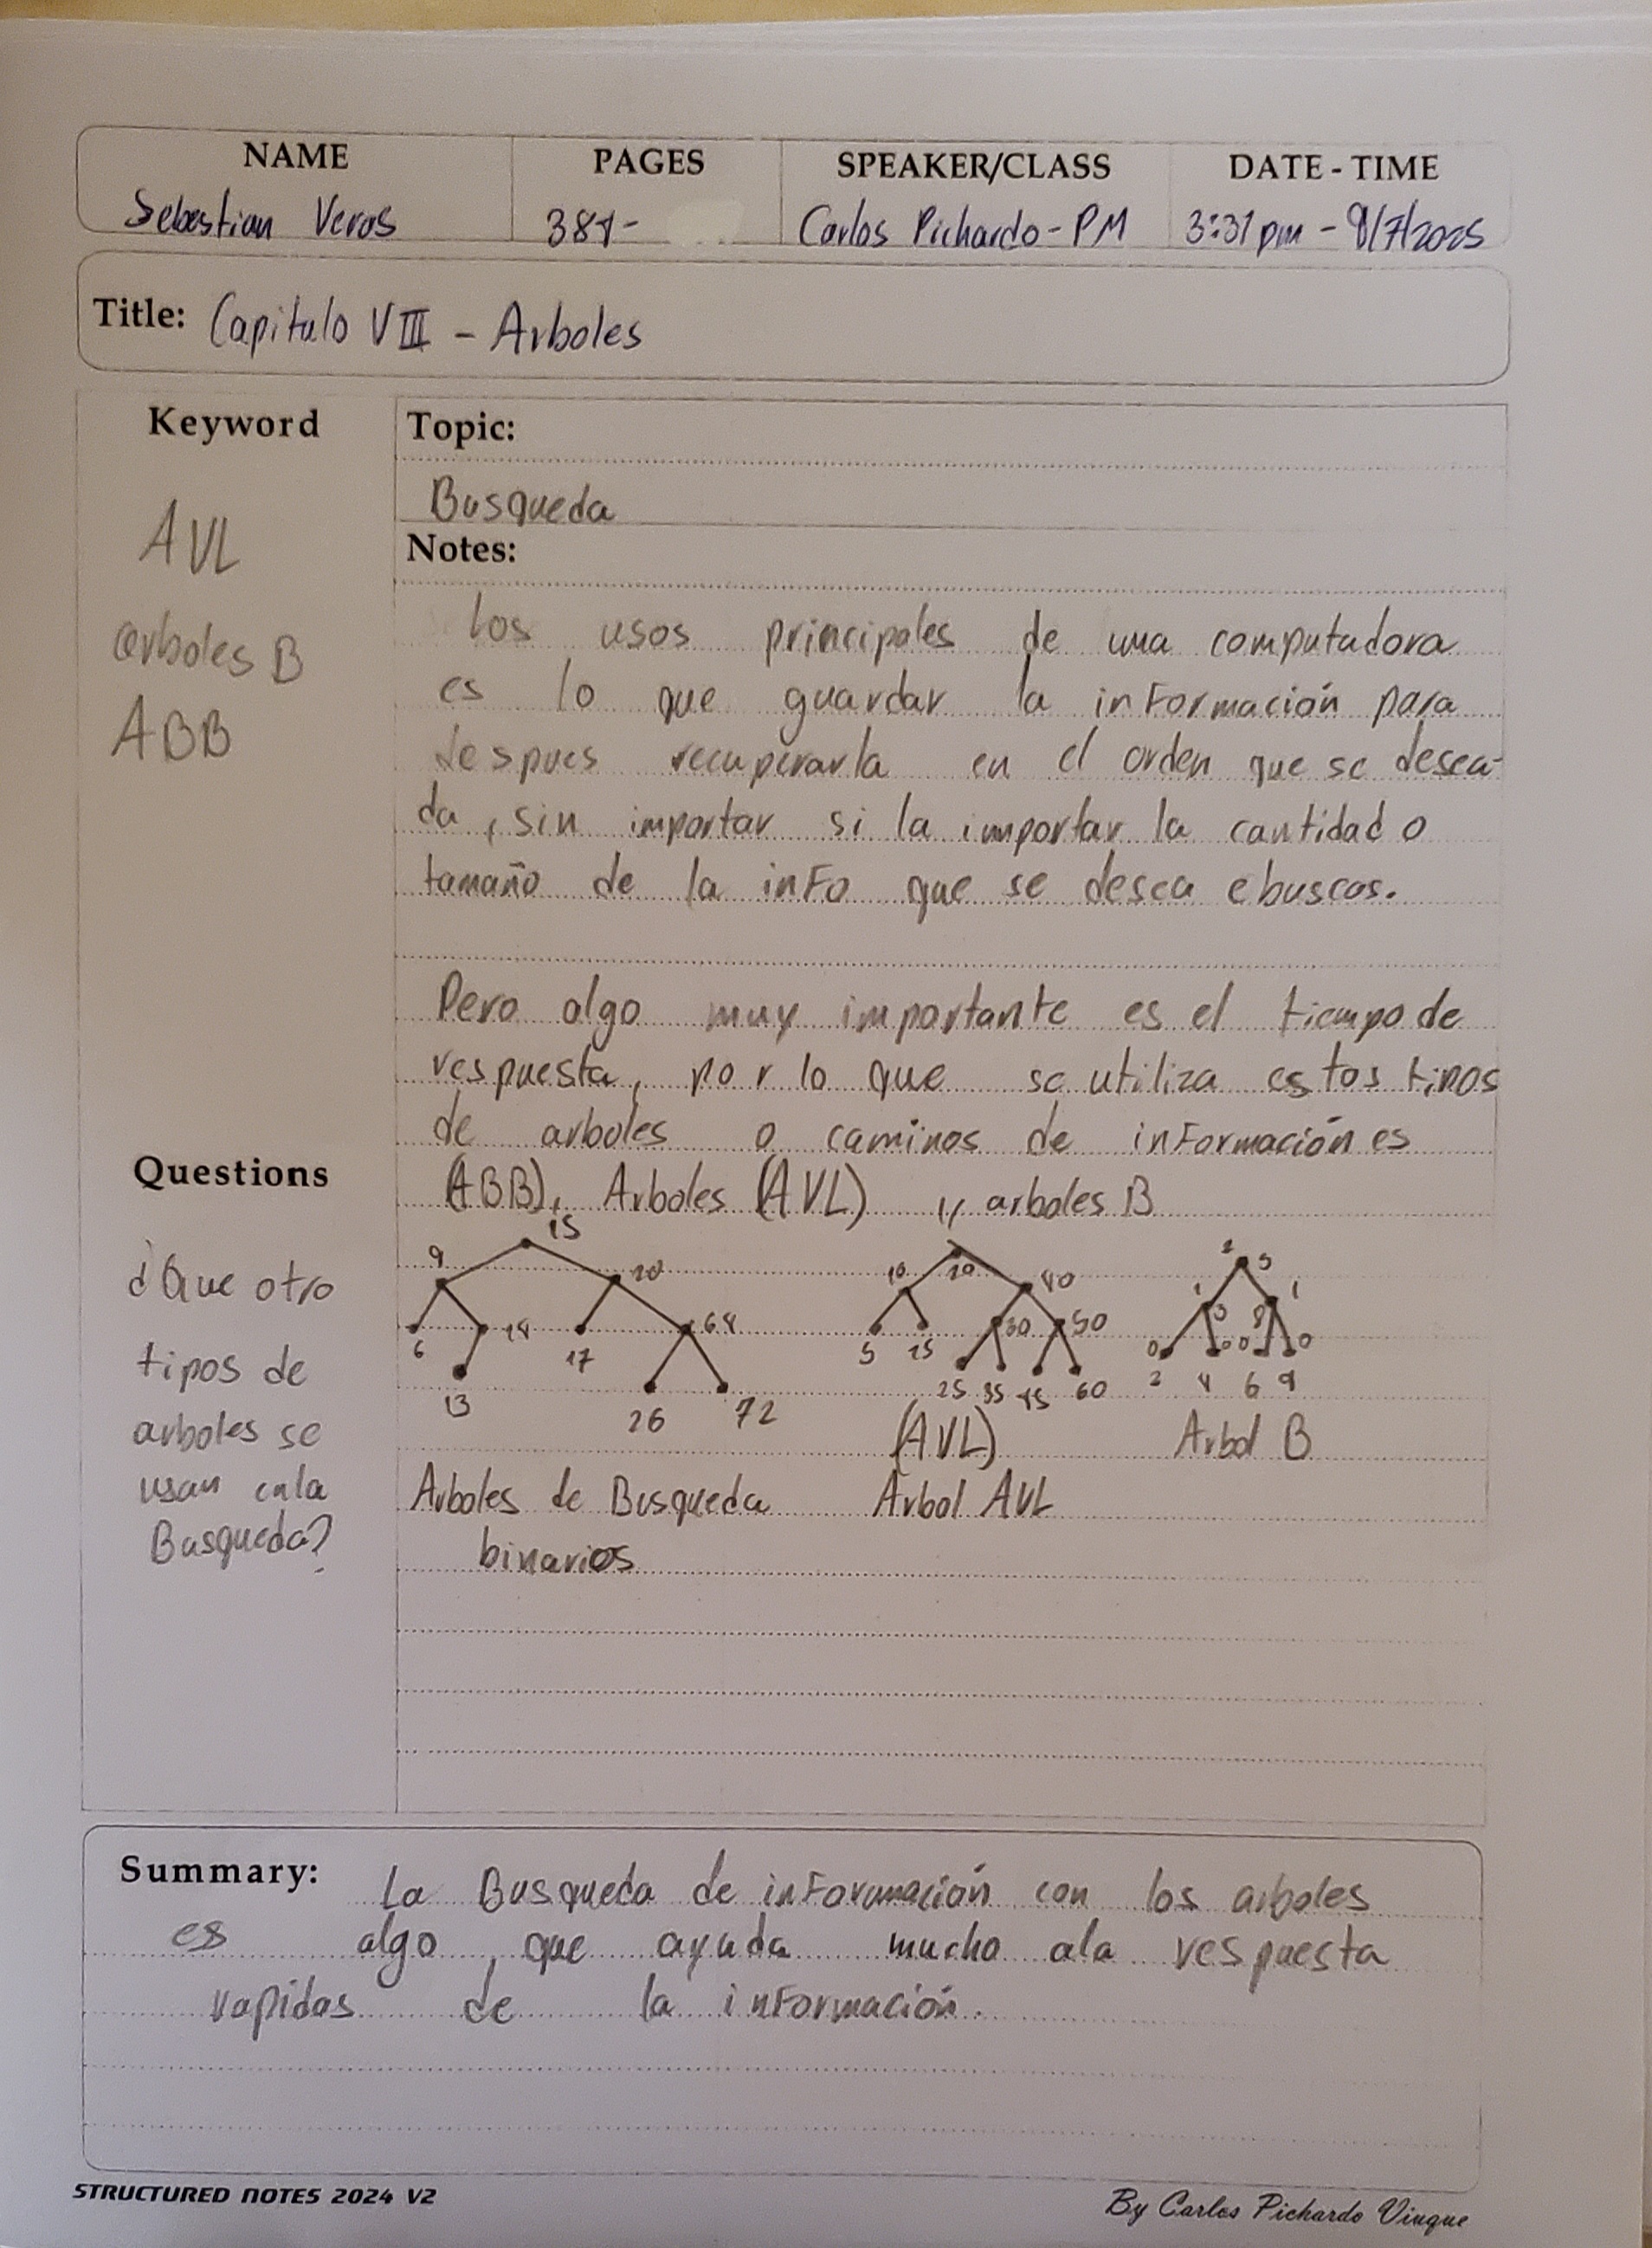 NAME PAGES SPEAKER/CLASS DATE - TIME
Sebastian Veras 381- Carlos Pichardo - PM 3:31 pm - 9/7/2025
Title: Capitulo VIII - Arboles
Keyword
AVL
arboles B
ABB
Topic:
Busqueda
Notes:
Los usos principales de una computadora
es lo que guardar la información para
despues recuperarla en el orden que se desea-
da, sin importar si la importar la cantidad o
tamaño de la info que se desea ebuscas.
Pero algo muy importante es el tiempo de
respuesta, por lo que se utiliza estos tipos
de arboles o caminos de información es
(ABB), Arboles (AVL) y arboles B
Questions
¿Que otro
tipos de
arboles se
usan enla
Busqueda?
15
9 20
6 14 17 64
13 26 72
20
10 40
5 15 30 50
25 35 45 60
2 5
1 3 8 1
0 0 0 0
2 4 6 9
(AVL) Arbol B
Arboles de Busqueda Arbol AVL
binarios
Summary: La Busqueda de información con los arboles
es algo que ayuda mucho ala respuesta
rapidas de la información.
STRUCTURED NOTES 2024 V2 By Carlos Pichardo Viuque